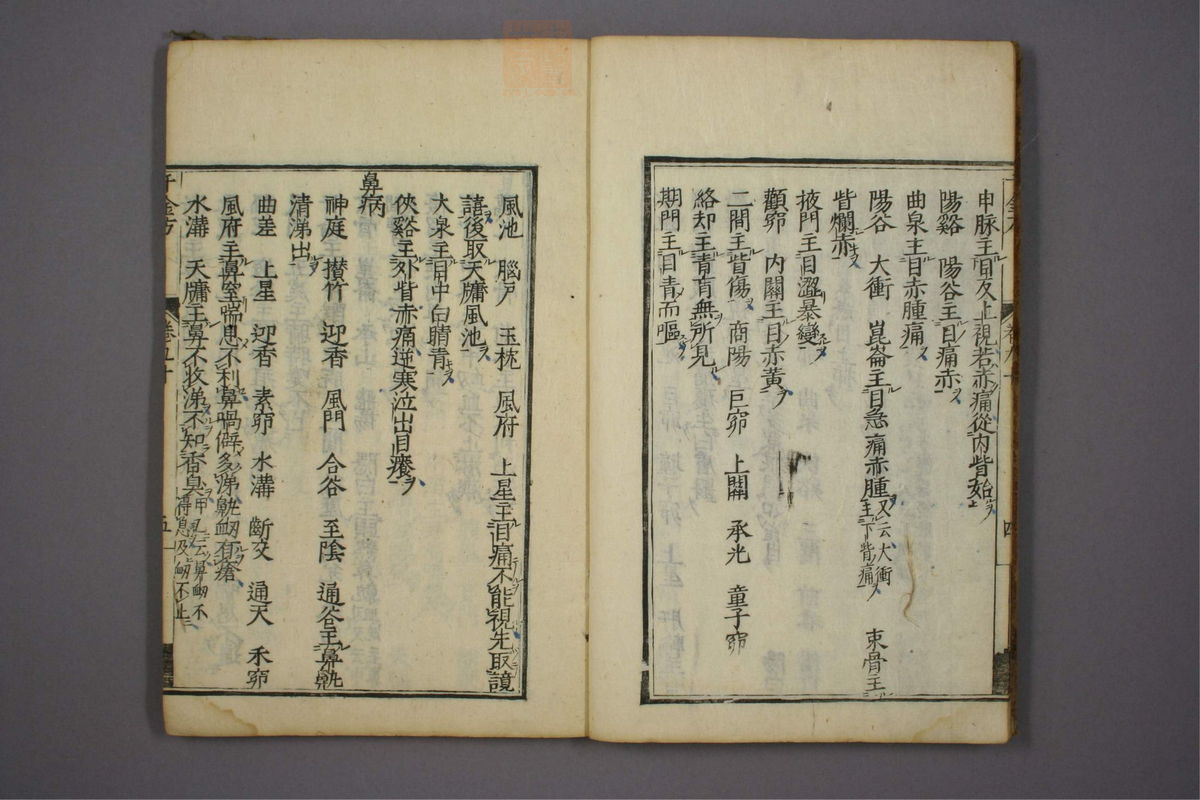 申脉主目反上視若赤痛從内眥始
陽谿　陽谷主目痛赤
曲泉主目赤腫痛
陽谷　大衝　崑崙主目急痛赤腫又云大衝主下眥痛　束骨主
眥爛赤
掖門主目澀暴變
顴窌　内關主目赤黄
二間主眥傷　商陽　巨窌　上關　承光　童子窌
絡却主青盲無所見
期門主目青而嘔
四
風池　腦戶　玉枕　風府　上星主目痛不能視先取譩
譆後取天牖風池
大泉主目中白睛青
俠谿主外眥赤痛逆寒泣出目癢
鼻病
神庭　攅竹　迎香　風門　合谷　至陰　通谷主鼻鼽
清涕出
曲差　上星　迎香　素窌　水溝　齗交　通天　禾窌
風府主鼻窒喘息不利鼻喎僻多涕鼽衄有瘡
水溝　天牖主鼻不收涕不知香臭甲乙云鼻衄不得息及衄不止
千金方
卷九十
五